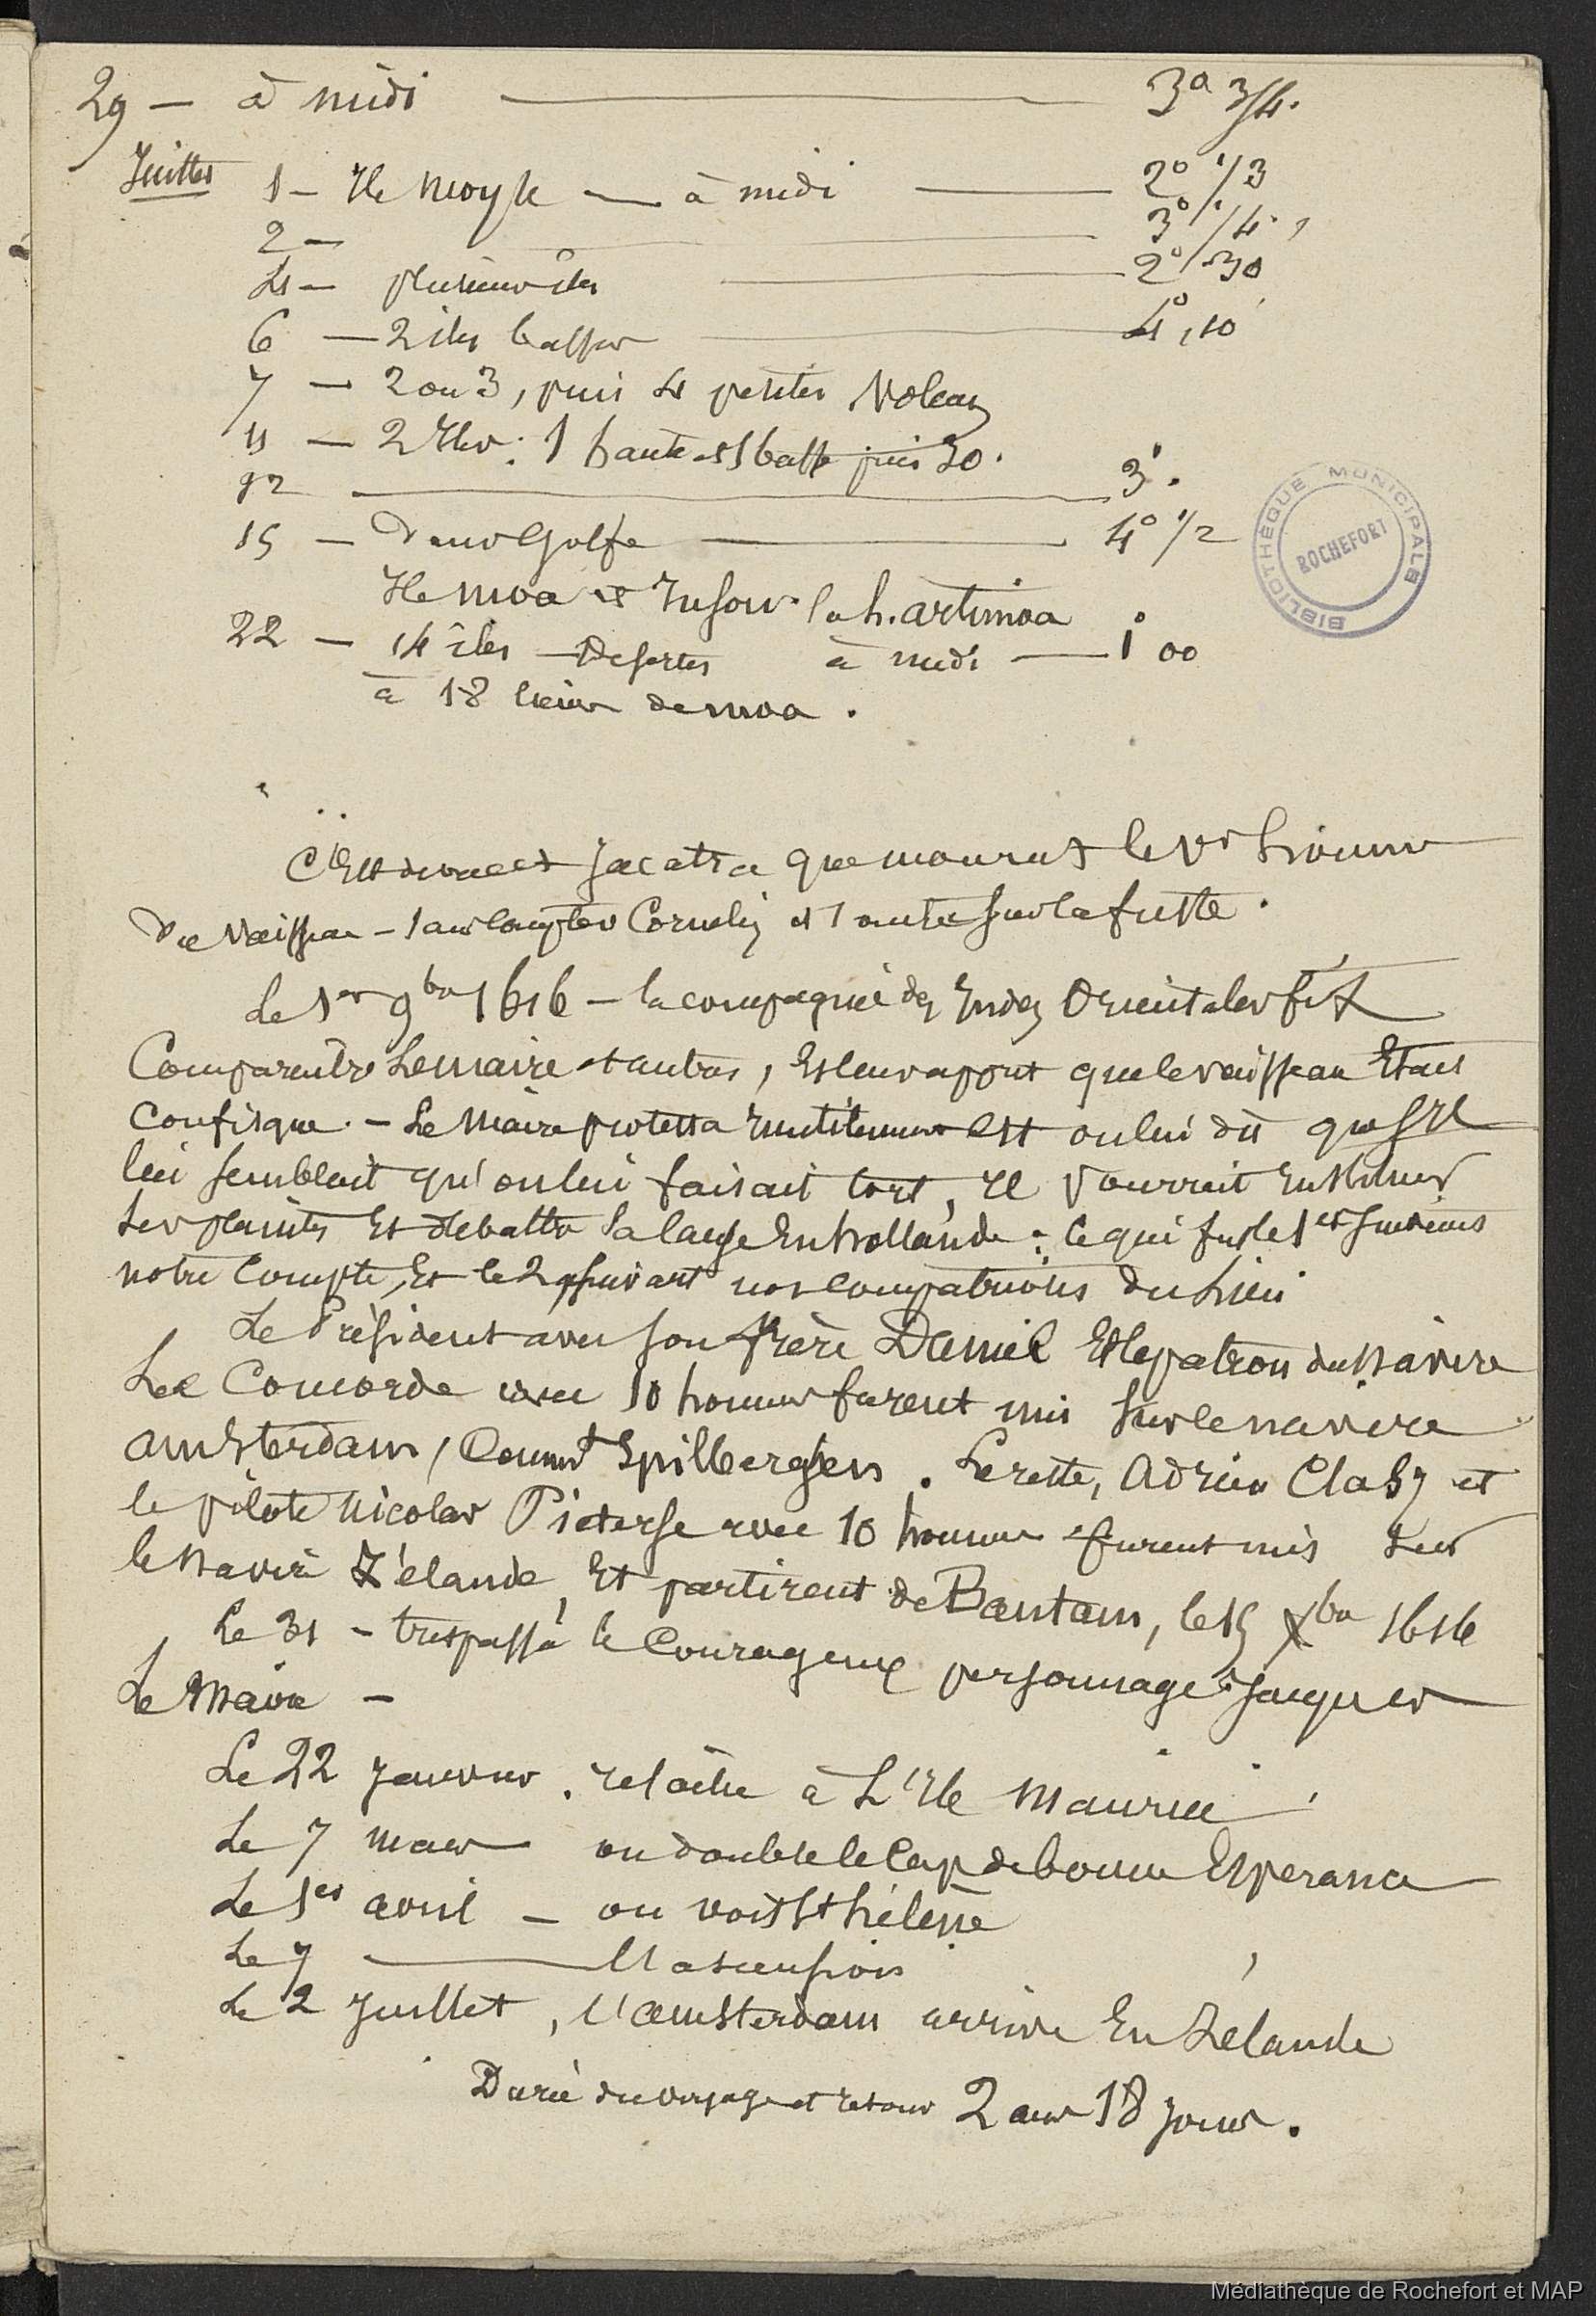 29 — à midi — 3° 3/4.
Juillet 1 — Ile Moyse — à midi — 2° 1/3
2 — 3° 1/4.
4 — plusieurs îles — 2° 30
6 — 2 iles basses — 4°, 10
7 — 2 ou 3, puis 4 petites Volcan
11 — 2 Iles : 1 haute et 1 basse puis 20.
12 — 3°.
15 — Dans Golfe — 4° 1/2
Ile moa et Insou. la h. artimoa
22 — 14 îles Desertes à midi — 1° 00
à 18 lieues de moa.
C'est devant Jacatra que mourut le 1er homme
du Vaisseau — sans compter Cornelisz et 1 autre sur la fuste.
Le 1er 9bre 1616 — la compagnie des Indes Orientales fit
Comparaître Lemaire et autres, Et leur apprit que le vaisseau Etait
Confisqué. — Le Maire protesta Inutilement et on lui dit que s'Il
lui semblait qu'on lui faisait tort, Il pourrait En former
ses plaintes Et debattre sa cause En hollande : ce qui fut le 1er
notre Compte, Et le 2 suivant nos compatriotes du lieu
Le Président avec son frère Daniel Et le patron du Navire
La Concorde avec 10 hommes furent mis sur le navire
Amsterdam, Commt Spilbergen. Le reste, Adrien Clasz et
le pilote Nicolas Pieterse avec 10 hommes furent mis sur
le Navire Zélande, Et partirent de Bantam, le 15 Xbre 1616
Le 31 — trespassa le Courageux personnage Jacques
Le Maire —
Le 22 Janvier. relâche à L'Ile Maurice
Le 7 mars on double le Cap de bonne Esperance
Le 1er avril — on voit St hélène
Le 7 — l'Ascension
Le 2 Juillet, l'Amsterdam arrive En Zelande
Durée du voyage et retour 2 ans 18 jours.
BIBLIOTHÈQUE MUNICIPALE
ROCHEFORT
Médiathèque de Rochefort et MAP